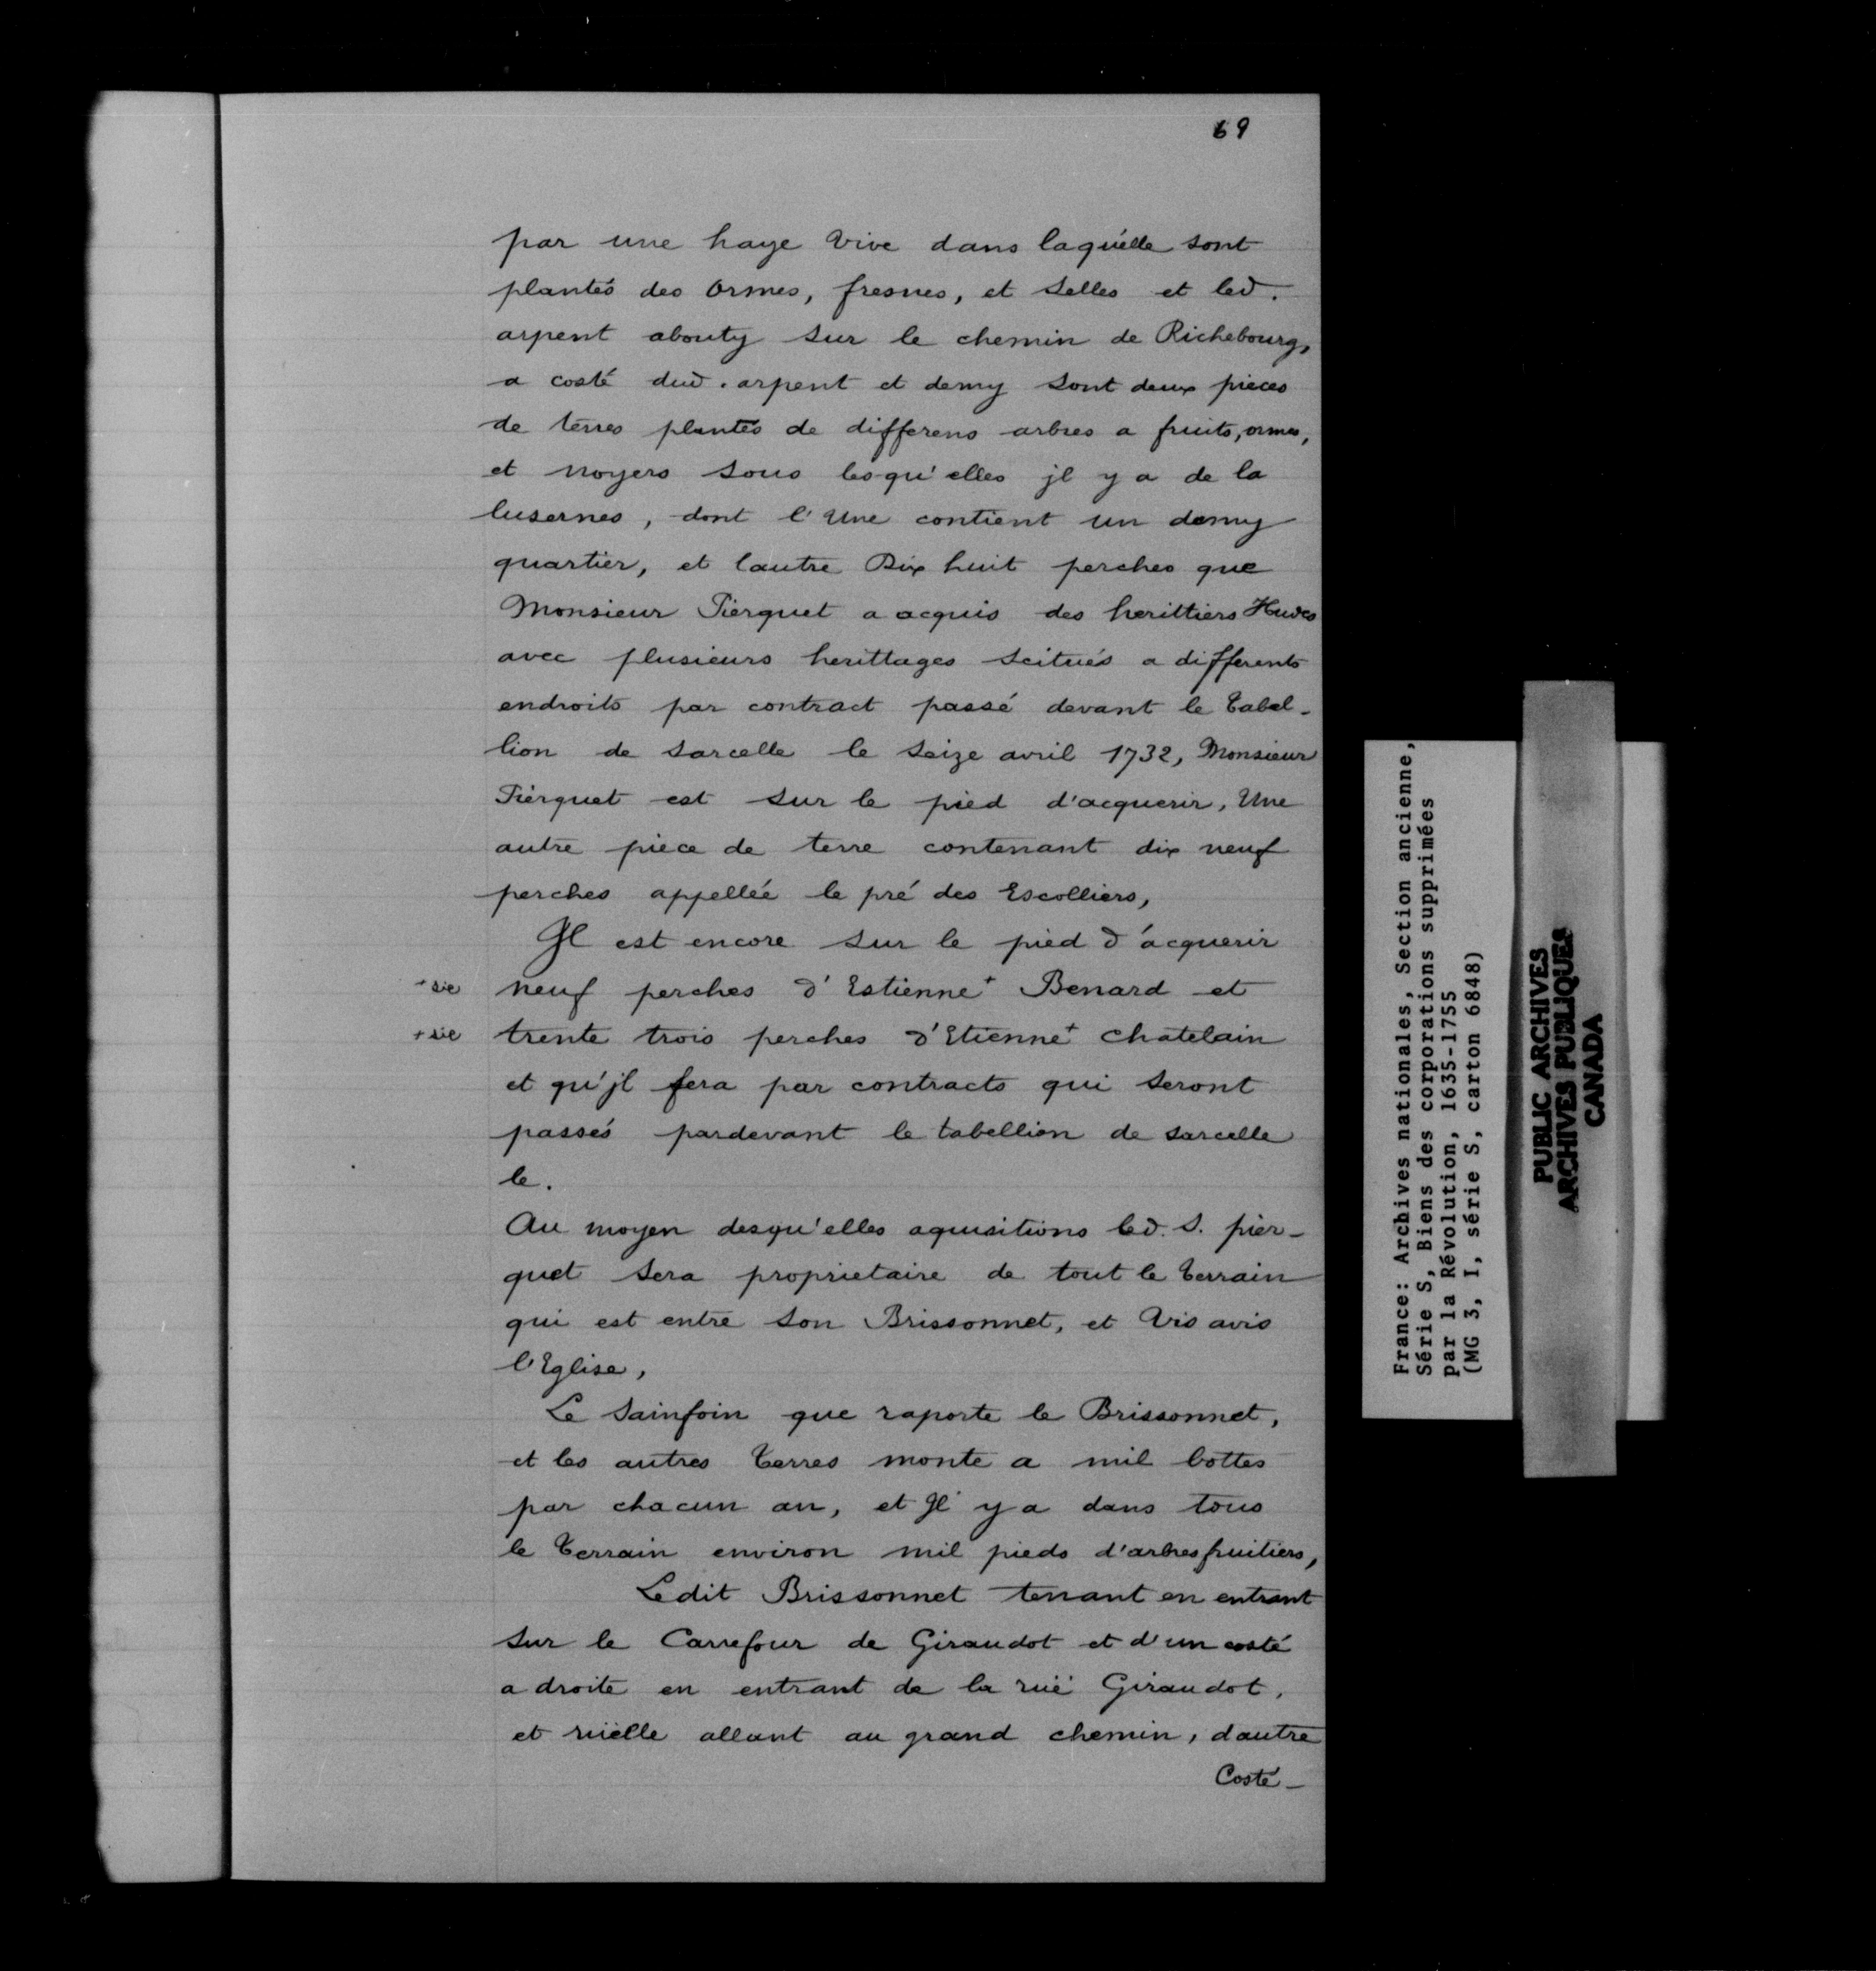 69
par une haye Vive dans laquélle sont
plantés des Ormes, fresnes, et Selles et led.
arpent abouty sur le chemin de Richebourg,
a costé dud. arpent et demy sont deux pieces
de terres plantés de differens arbres a fruits, ormes,
et noyers sous lesqu'elles jl y a de la
lusernes, dont l'Une contient un demy
quartier, et lautre Dix huit perches que
Monsieur Pierquet a acquis des herittiers
avec plusieurs herittages scitués a differents
endroits par contract passé devant le Tabel-
lion de sarcelle le seize avril 1732, Monsieur
Pierquet est sur le pied d'acquerir, Une
autre piece de terre contenant dix neuf
perches appellée le pré des Escolliers,
Jl est encore sur le pied d'acquerir
+ sic neuf perches d'Estienne+ Benard et
+ sic trente trois perches d'Etienne+ chatelain
et qu'jl fera par contracts qui seront
passés pardevant le tabellion de sarcelle
le.
Au moyen desqu'elles aquisitions led. S. pier-
quet sera proprietaire de tout le Terrain
qui est entre son Brissonnet, et Vis avis
l'Eglise,
Le Sainfoin que raporte le Brissonnet,
et les autres Terres monte a mil bottes
par chacun an, et Jl y a dans tous
le Terrain environ mil pieds d'arbres fruitiers,
Ledit Brissonnet tenant en entrant
sur le Carrefour de Giraudot et d'un costé
a droite en entrant de la rüe Giraudot,
et rüelle allant au grand chemin, dautre
Costé-
France: Archives nationales, Section ancienne,
Série S, Biens des corporations supprimées
par la Révolution, 1635-1755
(MG 3, I, série S, carton 6848)
PUBLIC ARCHIVES
ARCHIVES PUBLIQUES
CANADA